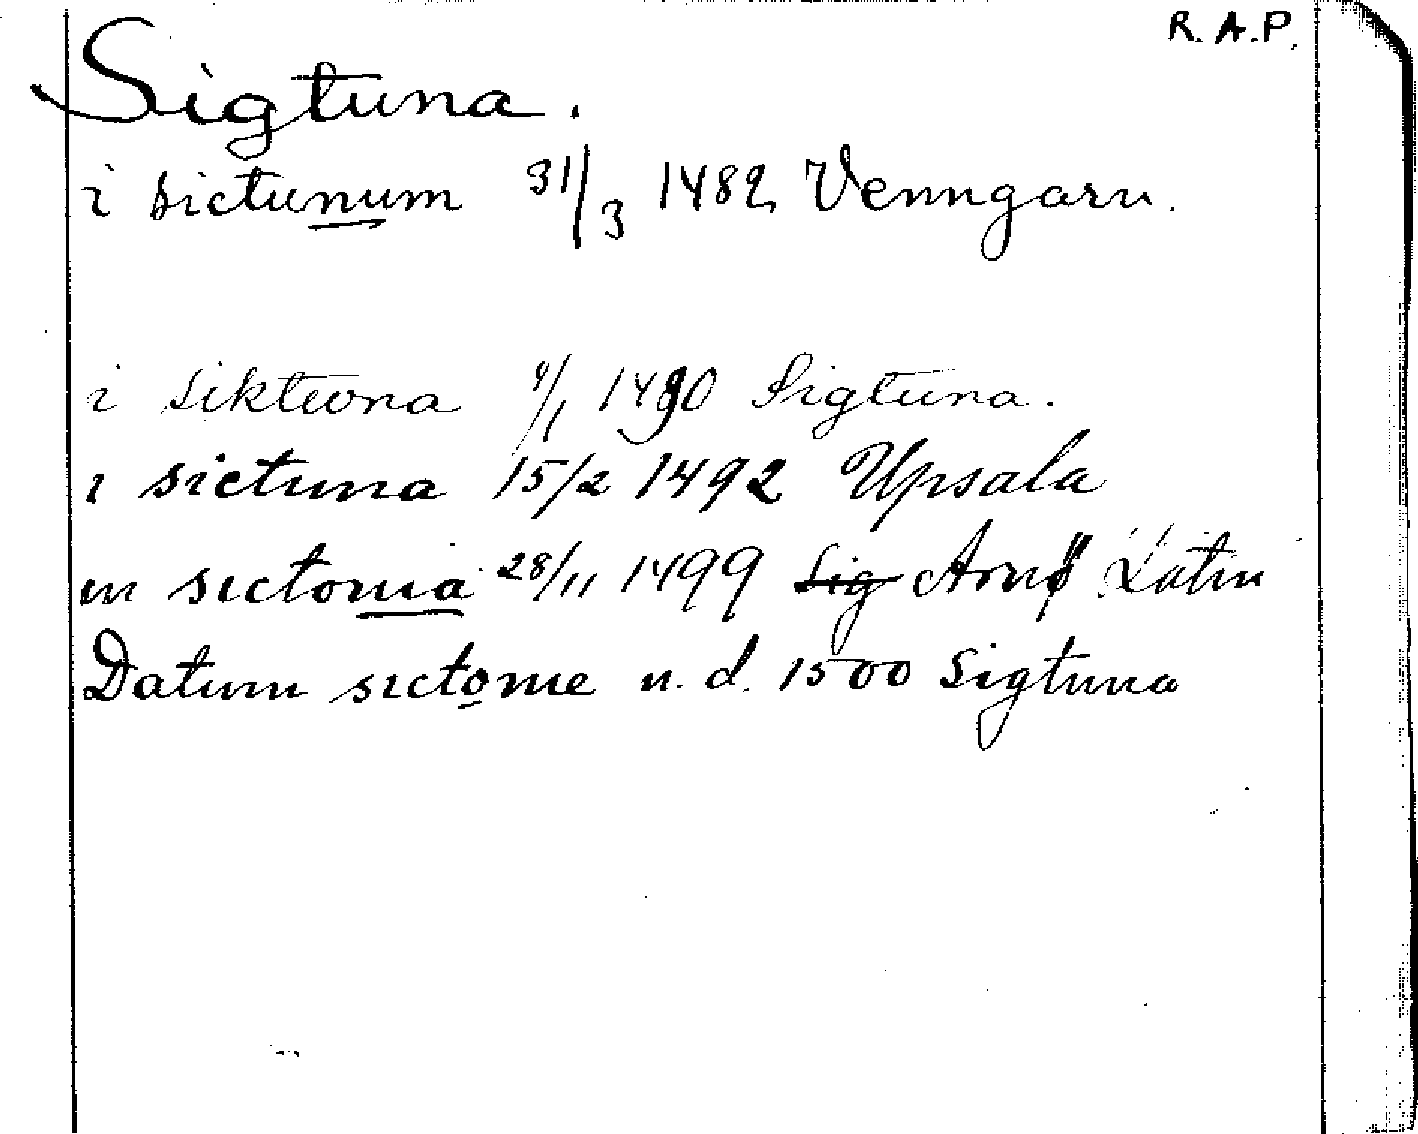 R. A. P.
Sigtuna.
i sictunum 31/3 1482 Venngarn.
i siktwna 9/1 1490 Sigtuna.
i sictuna 15/2 1492 Upsala
in sictonia 28/11 1499 Sig Arnö Latin
Datum sictonie u. d. 1500 Sigtuna